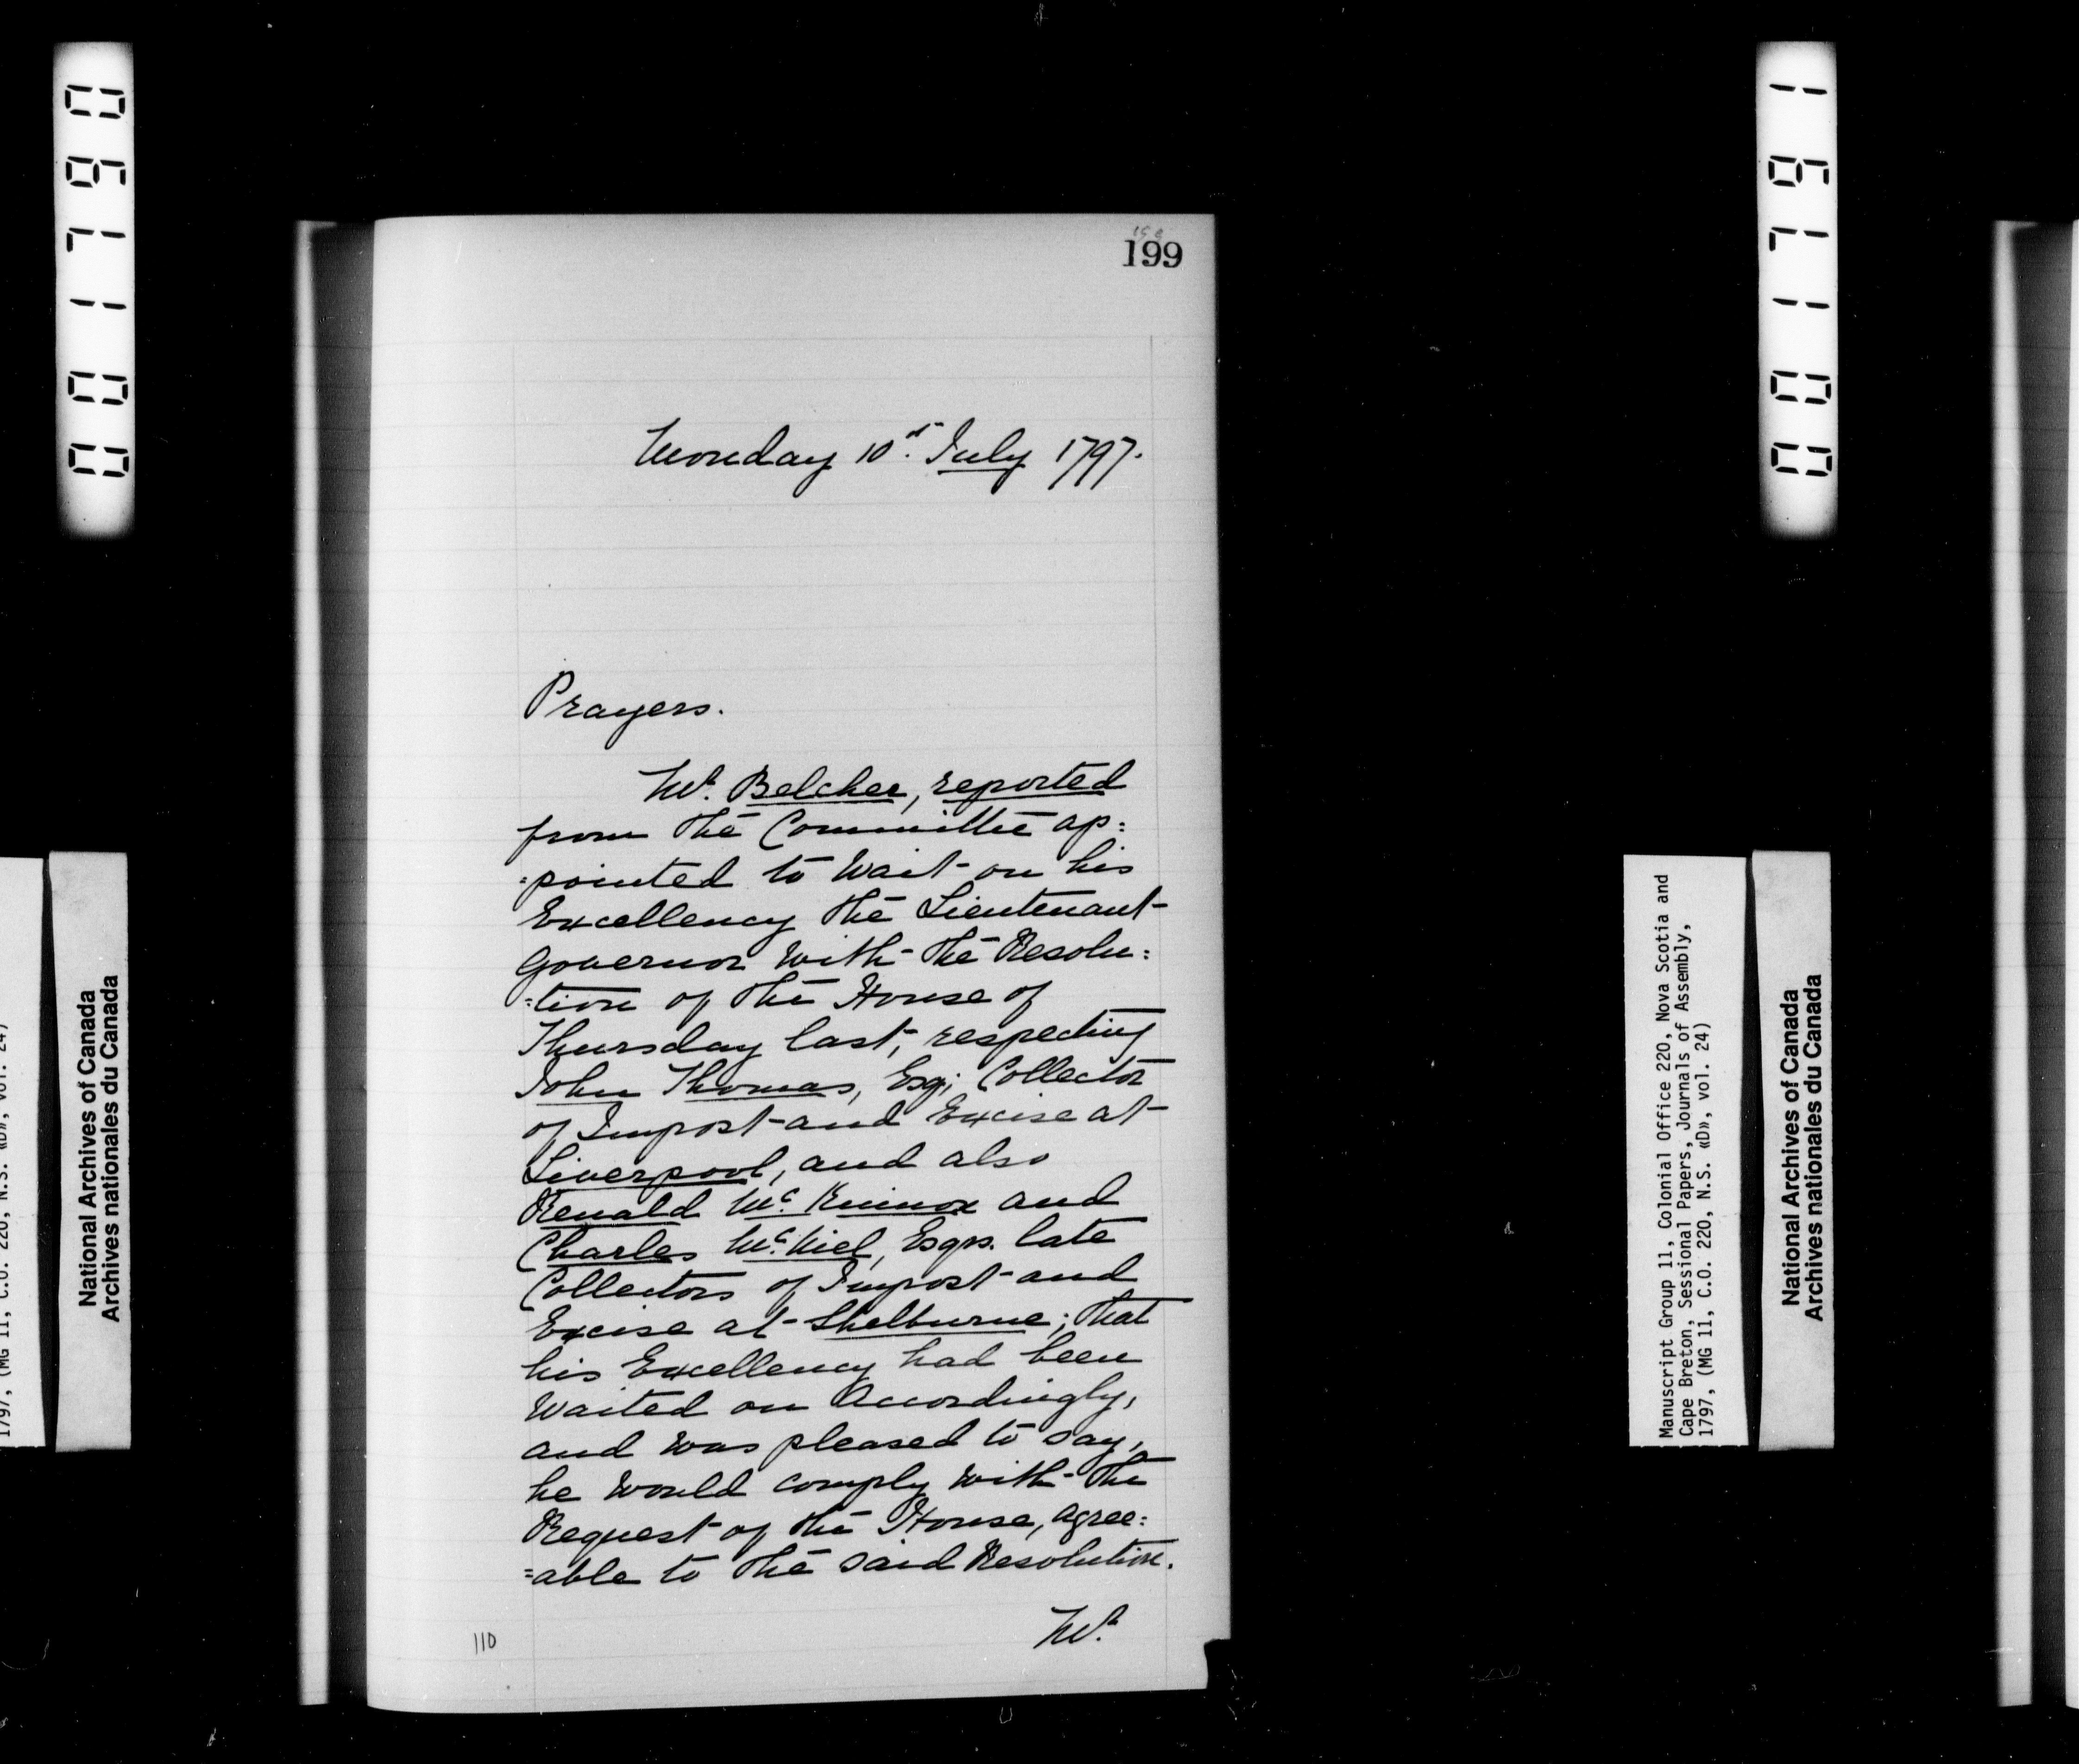 199
Monday 10th. July 1797.
Prayers.
Mr. Belcher, reported
from the Committee ap:
:pointed to Wait on his
Excellency the Lieutenant
Governor With the Resolu:
:tion of the House of
Thursday last, respecting
John Thomas, Esq; Collector
of Impost and Excise at
Liverpool, and also
Renald Mc. Kinnon and
Charles Mc. Niel, Esqrs. late
Collectors of Impost and
Excise at Shelburne; that
his Excellency had been
Waited on Accordingly,
and was pleased to say,
he Would comply With the
Request of the House, agree:
:able to the said Resolution.
Mr.
110
001790
National Archives of Canada
Archives nationales du Canada
1797, (MG 11, C.O. 220, N.S. «D», vol. 24)
001791
Manuscript Group 11, Colonial Office 220, Nova Scotia and
Cape Breton, Sessional Papers, Journals of Assembly,
1797, (MG 11, C.O. 220, N.S. «D», vol. 24)
National Archives of Canada
Archives nationales du Canada